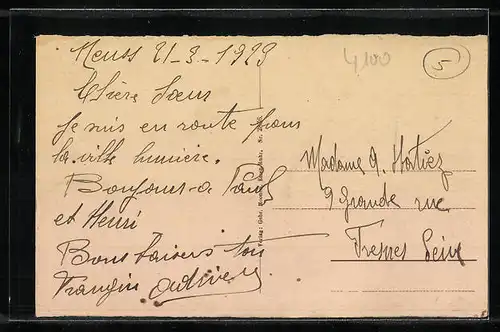 Neuss 21-3-1929
Chère Sœur
Je suis en route pour
la ville lumière.
Bonjour à Paul
et Henri
Bons baisers ton
Frangin
4,00
5
Madame A.
9 Grande rue
Fresnes Seine